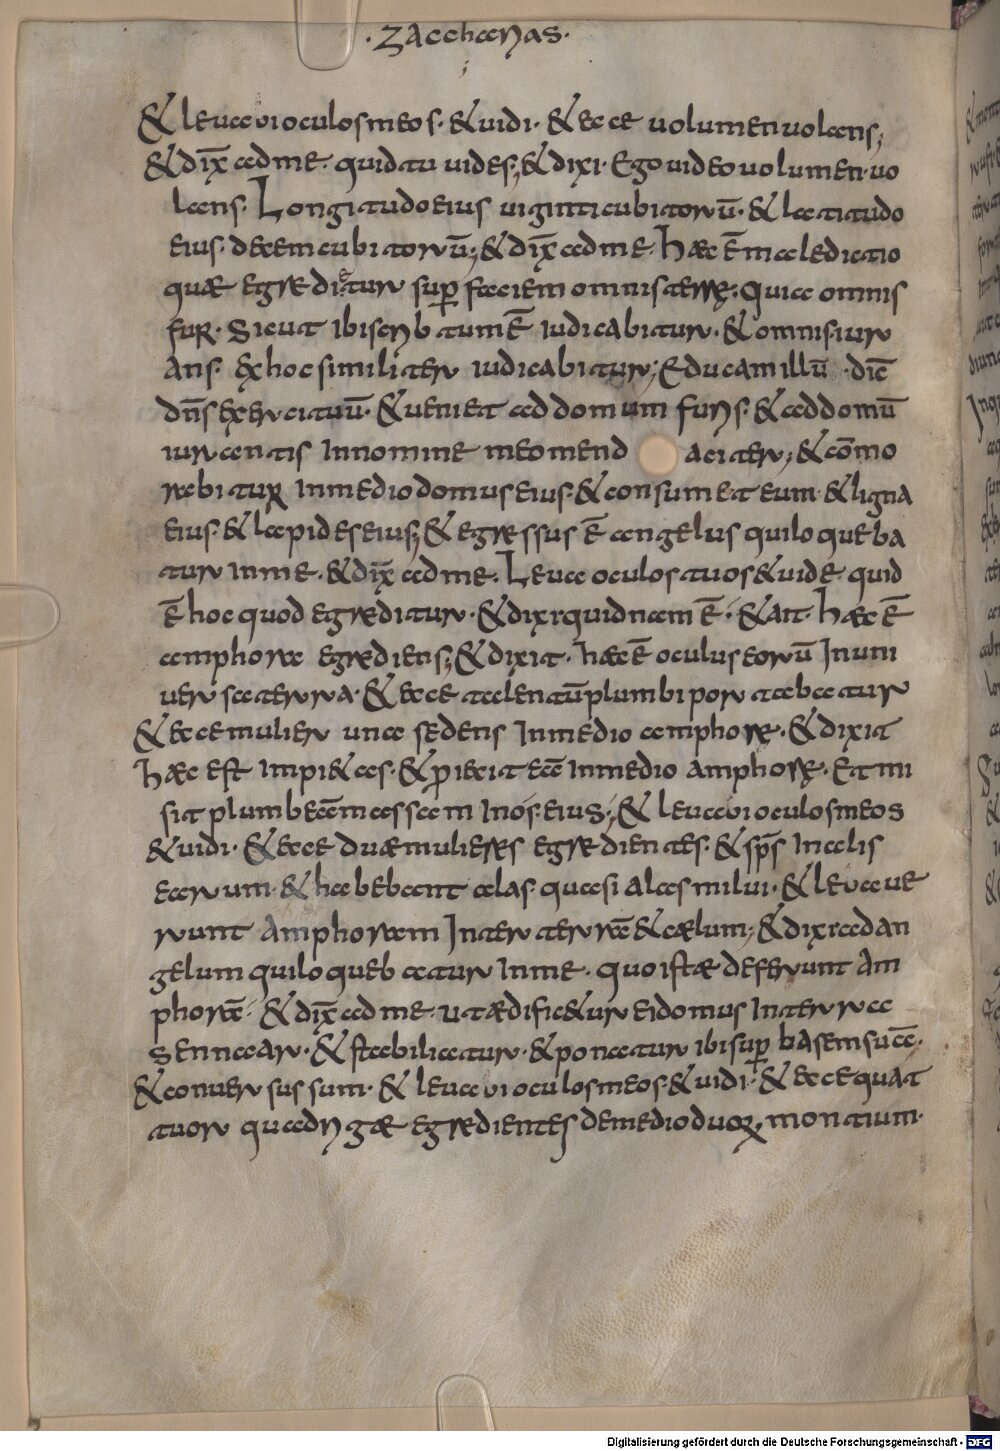 ·ZACCHARIAS·
& leuaui oculos meos· & uidi· & ecce uolumen uolans;
& dix̄ ad me· quid tu uides; & dixi· Ego uideo uolumen· uo
lans· Longitudo eius uiginti cubitorū· & latitudo
eius· decem cubitorū; & dix̄ ad me· Haec ē maledictio
quae egreditur sup̄ faciem omnis terrae· Quia omnis
fur· Sicut ibi scribtum ē iudicabitur· & omnis iur
ans· ex hoc similiter iudicabitur; Educam illū· diē
dn̄s exercituū· & ueniet ad domum furis· & ad domū
iurantis In nomine meo mend aciter; & cōmo
rabitur In medio domus eius· & consumet eum· & ligna
eius· & lapides eius; & egressus ē angelus qui loqueba
tur In me· & dix̄ ad me· Leua oculos tuos & uide· quid
ē hoc quod egreditur· & dixi quidnam ē· & ait· Haec ē
amphora egrediens; & dixit· haec ē oculus eorū In uni
uersa terra· & ecce talentū plumbi portabatur
& ecce mulier una sedens In medio amphorae· & dixit
Haec est Impi&as· & p̄iecit eā In medio amphorae· Et mi
sit plumbeā massam In os· eius; & leuaui oculos meos
& uidi· & ecce duae mulieres egredientes· & sp̄s In alis
earum· & habebant alas· quasi alas milui· & leuaue
runt amphoram Inter terrā & caelum; & dixi ad an
gelum qui loquebatur In me· quo istae deferunt am
phorā· & dix̄ ad me· ut aedific&ur ei domus In terra
sennaar· & stabiliatur· & ponatur ibi sup̄ basem suā·
& conuersus sum· & leuaui oculos meos· & uidi· & ecce quat
tuor quadrigae egredientes de medio duorum montium·
Digitalisierung gefördert durch die Deutsche Forschungsgemeinschaft - DFG